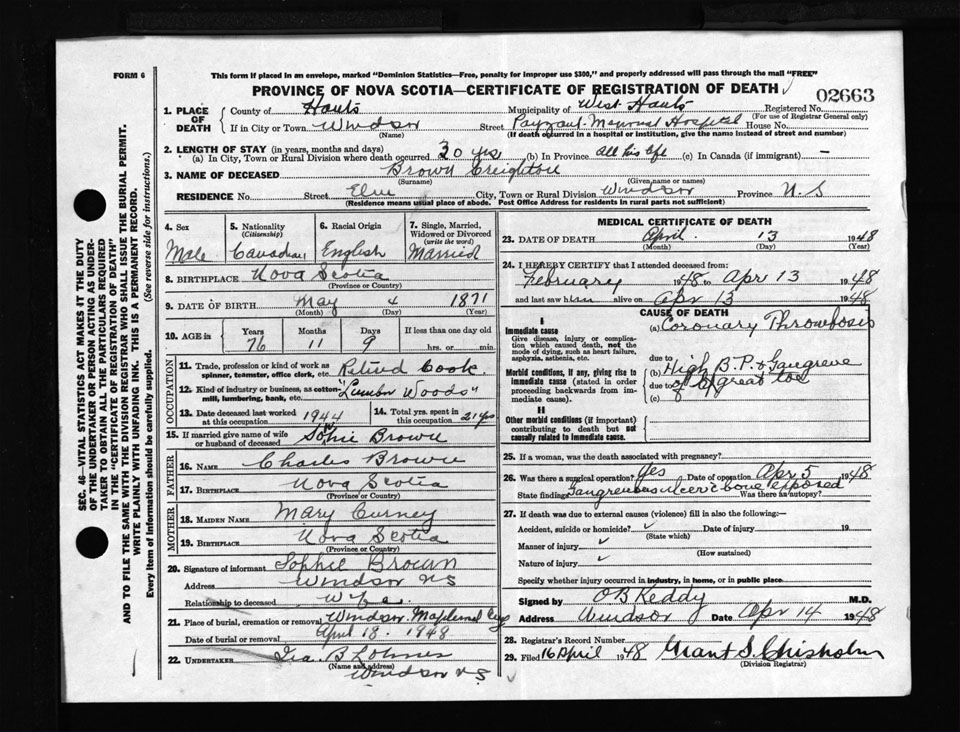 FORM 6
This form if placed in an envelope, marked "Dominion Statistics—Free, penalty for improper use $300," and properly addressed will pass through the mail "FREE"
PROVINCE OF NOVA SCOTIA—CERTIFICATE OF REGISTRATION OF DEATH
02663
1. PLACE OF DEATH County of Hants Municipality of West Hants Registered No.
(For use of Registrar General only)
If in City or Town Windsor Street Payzant Memorial Hospital House No.
(Name) (If death occurred in a hospital or institution, give the name instead of street and number)
2. LENGTH OF STAY (in years, months and days)
(a) In City, Town or Rural Division where death occurred 30 yrs (b) In Province All his life (c) In Canada (if immigrant) —
3. NAME OF DECEASED Brown Creighton
(Surname) (Given name or names)
RESIDENCE No. Street Elm City, Town or Rural Division Windsor Province N.S
(Residence means usual place of abode. Post Office Address for residents in rural parts not sufficient)
4. Sex Male
5. Nationality (Citizenship) Canadian
6. Racial Origin English
7. Single, Married, Widowed or Divorced (write the word) Married
8. BIRTHPLACE Nova Scotia
(Province or Country)
9. DATE OF BIRTH May 4 1871
(Month) (Day) (Year)
10. AGE in Years Months Days If less than one day old
76 11 9 hrs. or min.
OCCUPATION
11. Trade, profession or kind of work as spinner, teamster, office clerk, etc. Retired Cook
12. Kind of industry or business, as cotton-mill, lumbering, bank, etc. "Lumber Woods"
13. Date deceased last worked at this occupation 1944
14. Total yrs. spent in this occupation 21 yrs
15. If married give name of wife or husband of deceased Sophie Brown
FATHER
16. NAME Charles Brown
17. BIRTHPLACE Nova Scotia
(Province or Country)
MOTHER
18. MAIDEN NAME Mary Curney
19. BIRTHPLACE Nova Scotia
(Province or Country)
20. Signature of informant Sophie Brown
Address Windsor NS
Relationship to deceased Wife
21. Place of burial, cremation or removal Windsor Maplewood Cem
Date of burial or removal April 18. 1948
22. UNDERTAKER Ira. B Lohnes
(Name and address)
Windsor N.S
MEDICAL CERTIFICATE OF DEATH
23. DATE OF DEATH April 13 1948
(Month) (Day) (Year)
24. I HEREBY CERTIFY that I attended deceased from:
February 1948 to Apr 13 1948
and last saw him alive on Apr 13 1948
CAUSE OF DEATH
I
Immediate cause (a) Coronary Thrombosis
Give disease, injury or complication which caused death, not the mode of dying, such as heart failure, asphyxia, asthenia, etc.
due to
Morbid conditions, if any, giving rise to immediate cause (stated in order proceeding backwards from immediate cause).
(b) High B.P. & Gangrene
due to of great toe
(c)
II
Other morbid conditions (if important) contributing to death but not causally related to immediate cause.
25. If a woman, was the death associated with pregnancy?
26. Was there a surgical operation? Yes Date of operation Apr 5 1948
State findings Gangrenous ulcer c bone exposed Was there an autopsy?
27. If death was due to external causes (violence) fill in also the following:—
Accident, suicide or homicide? ✓ Date of injury 19
(State which)
Manner of injury ✓
(How sustained)
Nature of injury ✓
Specify whether injury occurred in industry, in home, or in public place.
Signed by OB Keddy M.D.
Address Windsor Date Apr 14 1948
28. Registrar's Record Number
29. Filed 16 April 1948 Grant S. Chisholm
(Division Registrar)
SEC. 46—VITAL STATISTICS ACT MAKES IT THE DUTY
OF THE UNDERTAKER OR PERSON ACTING AS UNDER-
TAKER TO OBTAIN ALL THE PARTICULARS REQUIRED
IN THE "CERTIFICATE OF REGISTRATION OF DEATH"
AND TO FILE THE SAME WITH THE DIVISION REGISTRAR WHO SHALL ISSUE THE BURIAL PERMIT.
WRITE PLAINLY WITH UNFADING INK. THIS IS A PERMANENT RECORD.
Every item of Information should be carefully supplied. (See reverse side for instructions.)